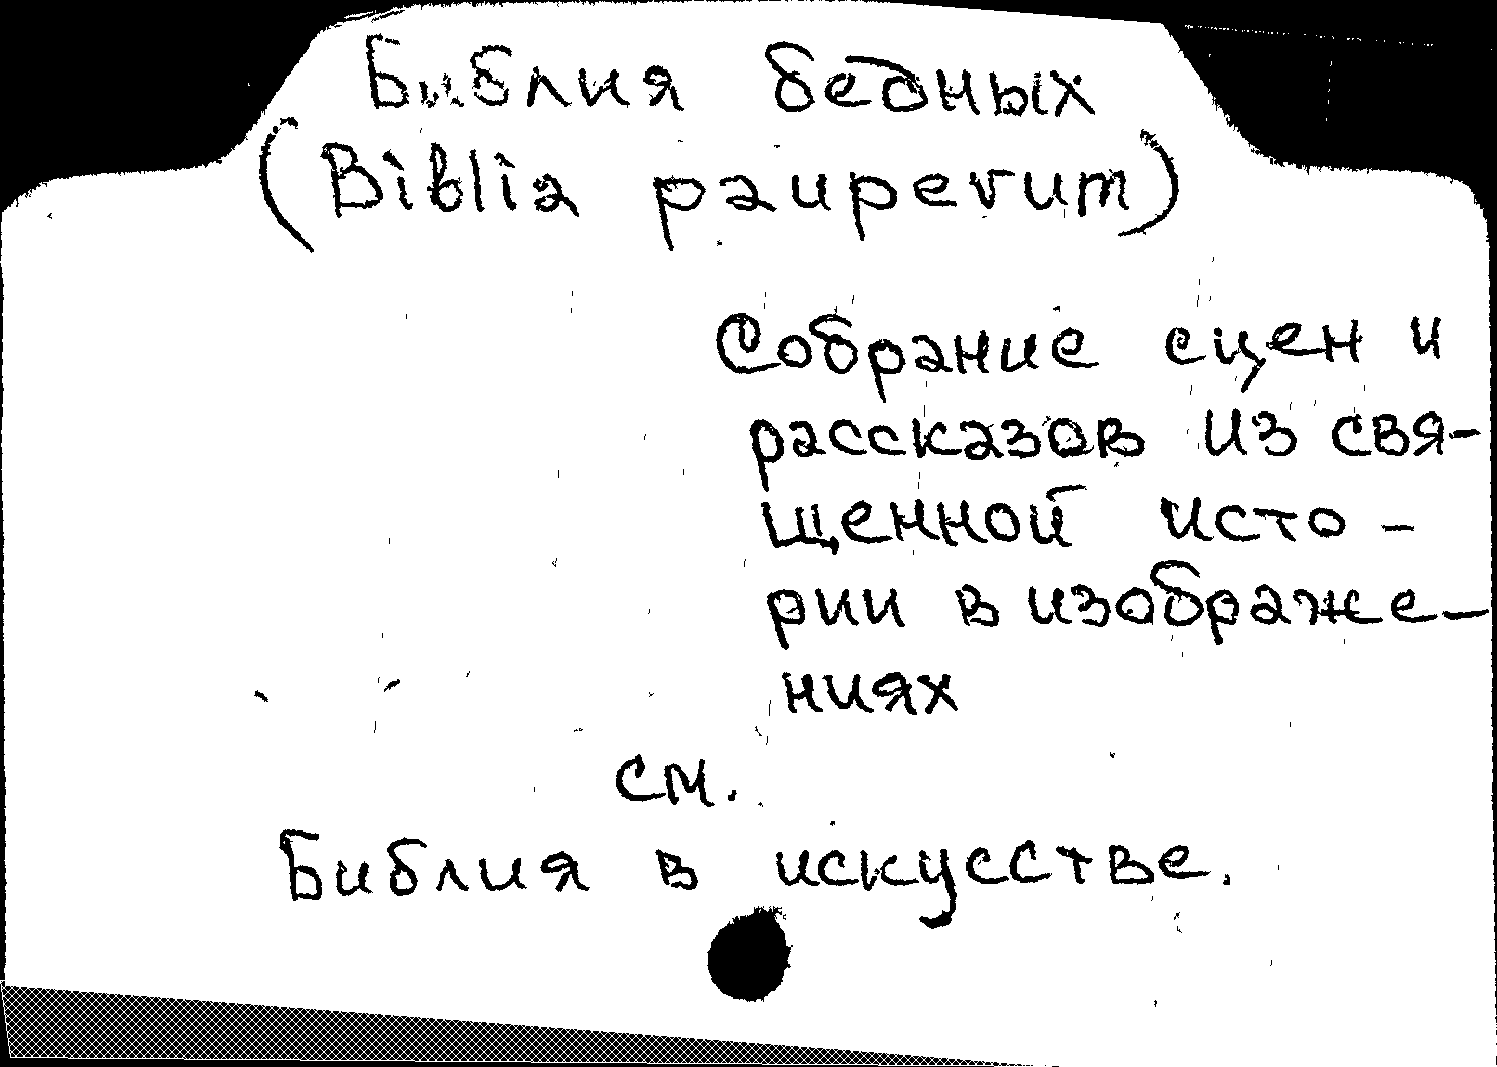 Библия бедных
(Biblia pauperum)
Собрание сцен и
рассказов из свя-
щенной исто-
рии в изображе-
ниях
см.
Библия в искусстве.